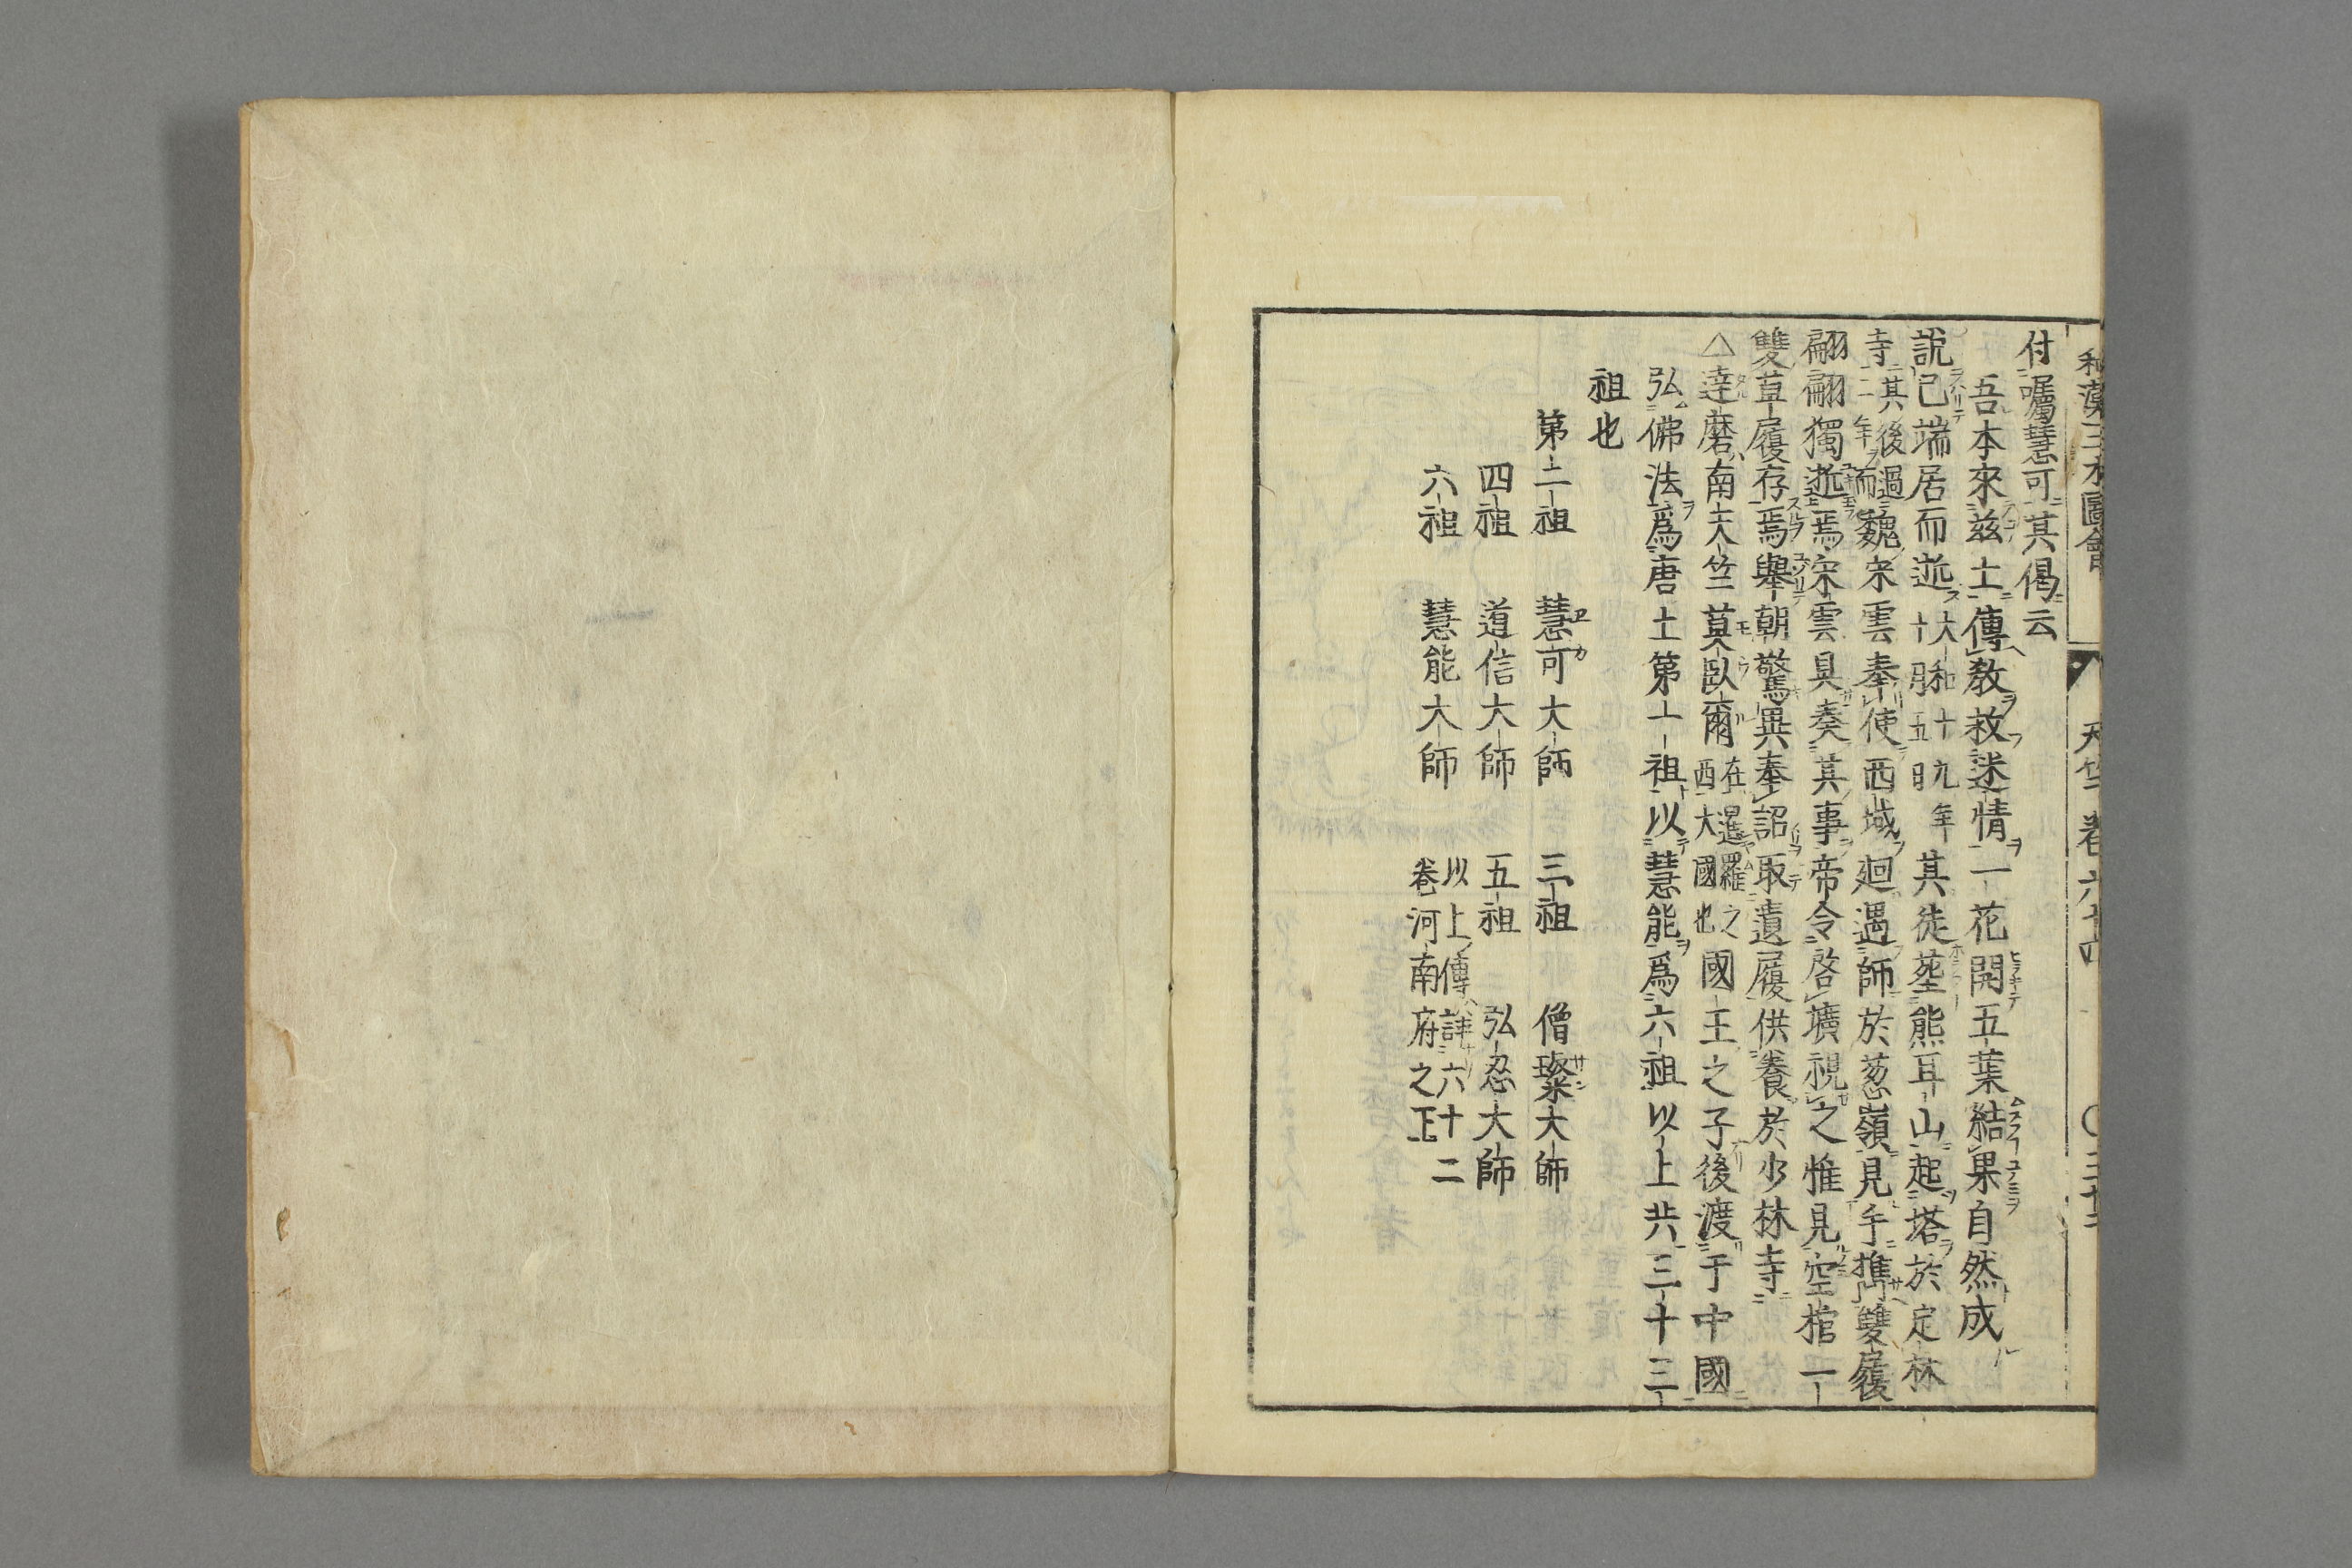 和漢三才圖會
天竺 卷六十四 〇三十二
付囑慧可其偈云
吾本來茲土傳教救迷情一花開五葉結果自然成
說已端居而逝大和十九年十月五日其徒葬熊耳山起塔於定林
寺其後過二年而魏宋雲奉使西域廻遇師於葱嶺見手攜雙履
翩翩獨逝焉宋雲具奏其事帝令啓壙視之惟見空棺一
雙革履存焉舉朝驚異奉詔取遺履供養於少林寺
△達磨南天竺莫臥爾在暹羅之西大國也國王之子後渡于中國
弘佛法爲唐土第一祖以慧能爲六祖以上共三十三
祖也
第二祖 慧可大師 三祖 僧璨大師
四祖 道信大師 五祖 弘忍大師
六祖 慧能大師 以上傳詳六十二卷河南府之下